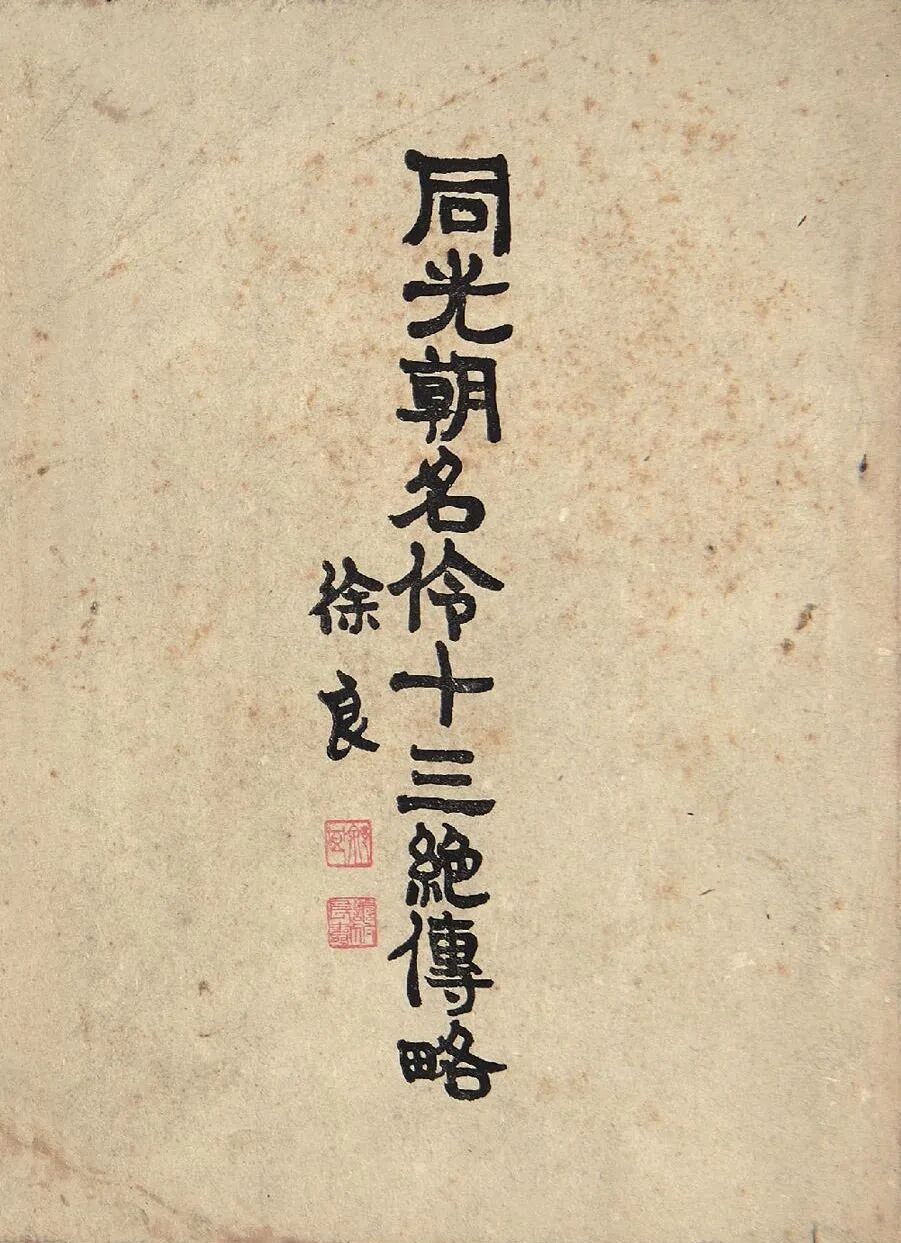 同光朝名伶十三絕傳略
徐良